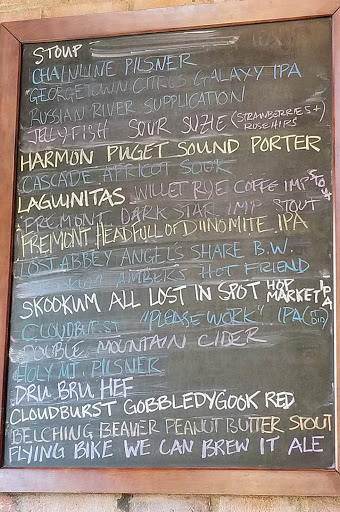 STOUP
CHAINLINE PILSNER
GEORGETOWN CITRUS GALAXY IPA
RUSSIAN RIVER SUPPLICATION
JELLYFISH SOUR SUZIE (STRAWBERRIES + ROSEHIPS
HARMON PUGET SOUND PORTER
CASCADE APRICOT SOUR
LAGUNITAS WILLET RYE COFFE IMP STOUT
FREMONT DARK STAR IMP STOUT
FREMONT HEADFULL OF DIINOMITE IPA
LOST ABBEY ANGEL'S SHARE B.W.
AMBER'S HOT FRIEND
SKOOKUM ALL LOST IN SPOT HOP MARKET IPA
CLOUDBURST "PLEASE WORK" IPA
DOUBLE MOUNTAIN CIDER
HOLY MT PILSNER
DRU BRU HEF
CLOUDBURST GOBBLEDYGOOK RED
BELCHING BEAVER PEANUT BUTTER STOUT
FLYING BIKE WE CAN BREW IT ALE